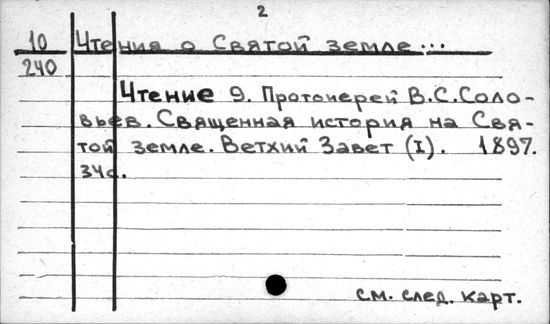 2
10 Чтения о Святой земле...
240
Чтение 9. Протоиерей В.С.Соло-
вьев. Священная история на Свя-
той земле. Ветхий Завет (I). 1897.
34с.
см. след. карт.